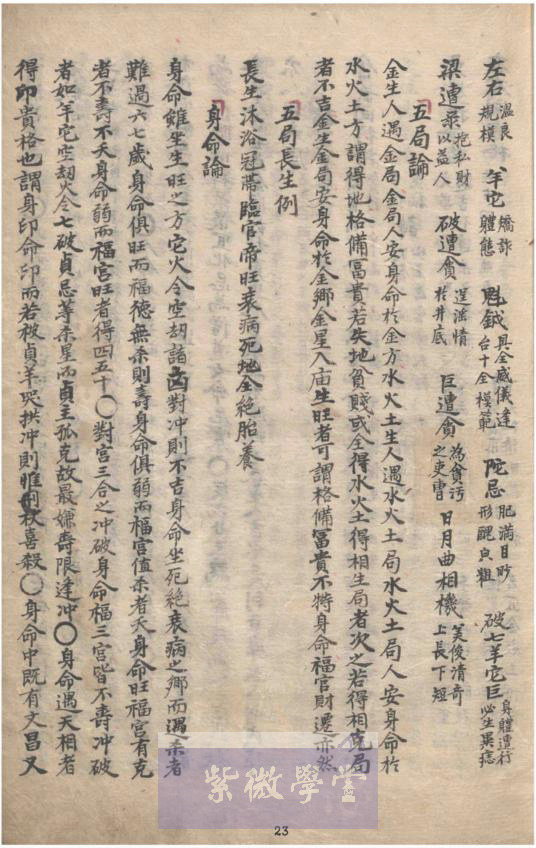 左右 溫良規模 羊它 矯詐體態 魁鉞 具全威儀逢台十全模範 陀忌 肥滿目眇形醜貞粗 破七羊它巨 身體遭行必生異痣
梁遭柔 抱私財以益人 破遭貪 逞淫情於井底 巨遭貪 為貪污之吏曹 日月曲相機 美俊清奇上長下短
五局論
金生人遇金局金局人安身命於金方水火土生人遇水火土局水火土局人安身命於
水火土方謂得地格備冨貴若失地貧賤或全得水火土得相生局者次之若得相克局
者不吉金生金局安身命於金鄉金星入庙生旺者可謂格備冨貴不特身命福官財遷亦然
五局長生例
長生沐浴冠帶臨官帝旺衰病死地全絕胎養
身命論
身命雖坐生旺之方它火令空劫諸凶對冲則不吉身命坐死絕衰病之鄉而遇柔者
難過六七歲身命俱旺而福德無柔則壽身命俱弱而福宮值柔者夭身命旺福宮有克
者不壽不夭身命弱而福宮旺者得四五十〇對宮三合之冲破身命福三宮皆不壽冲破
者如羊它空劫火令七破貞忌等柔星而貞主孤克故最嫌壽限逢冲〇身命遇天相者
得印貴格也謂身印命印而若被貞羊哭拱冲則惟刑杖喜殺〇身命中既有文昌又
紫微學堂
23